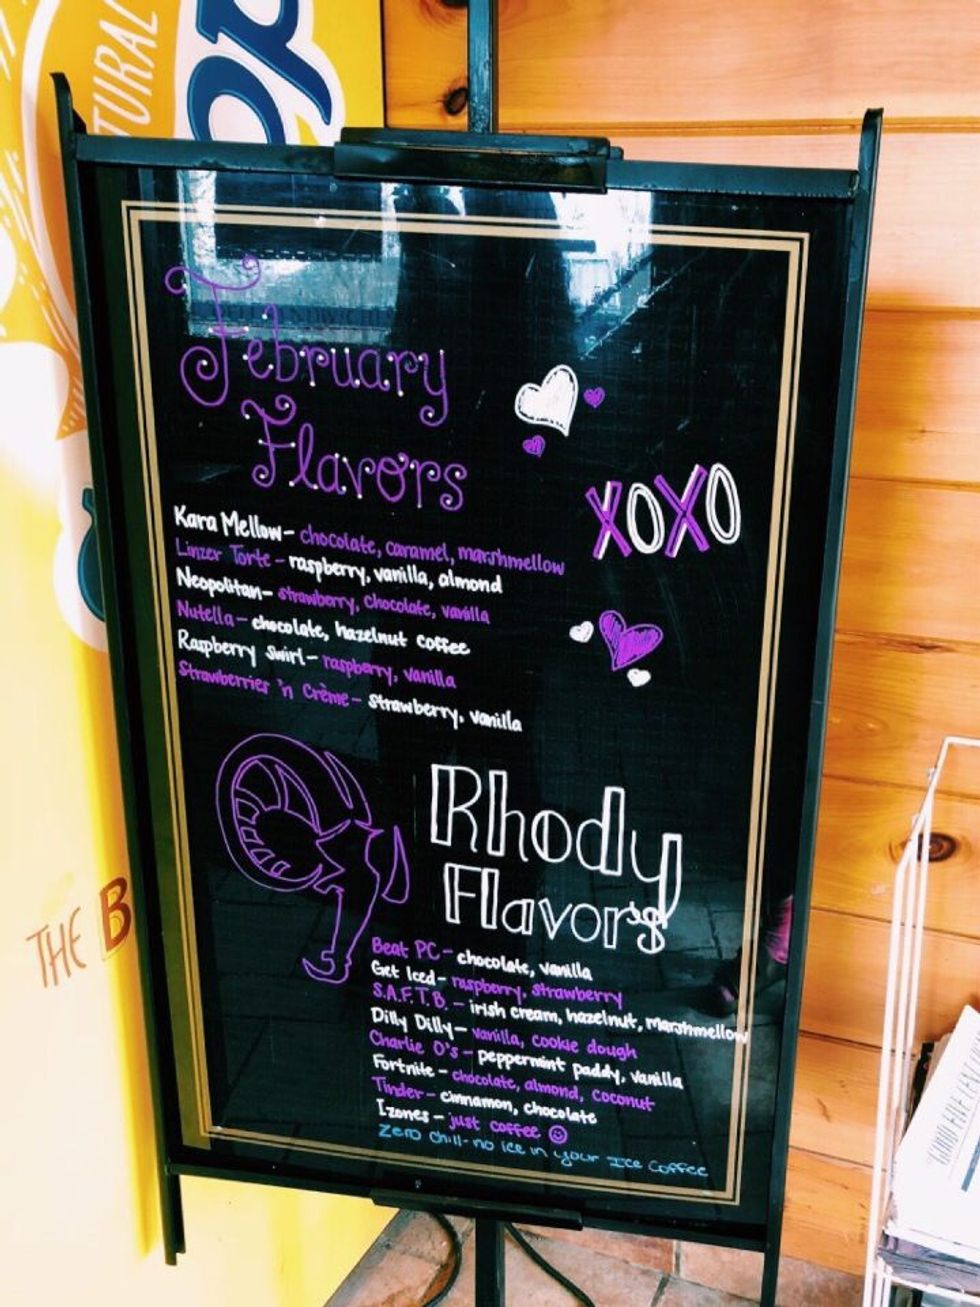 TURAL
February
Flavors
XOXO
Kara Mellow- chocolate, caramel, marshmellow
Linzer Torte - raspberry, vanilla, almond
Neopolitan- strawberry, chocolate, vanilla
Nutella- chocolate, hazelnut coffee
Raspberry Swirl- raspberry, vanilla
Strawberries 'n Crème- strawberry, vanilla
Rhody
Flavors
Beat PC- chocolate, vanilla
Get Iced- raspberry, strawberry
S.A.F.T.B. - irish cream, hazelnut, marshmellow
Dilly Dilly- vanilla, cookie dough
Charlie O's- peppermint paddy, vanilla
Fortnite - chocolate, almond, coconut
Tinder- cinnamon, chocolate
Izones - just coffee
Zero chill- no ice in your Ice Coffee
THE B